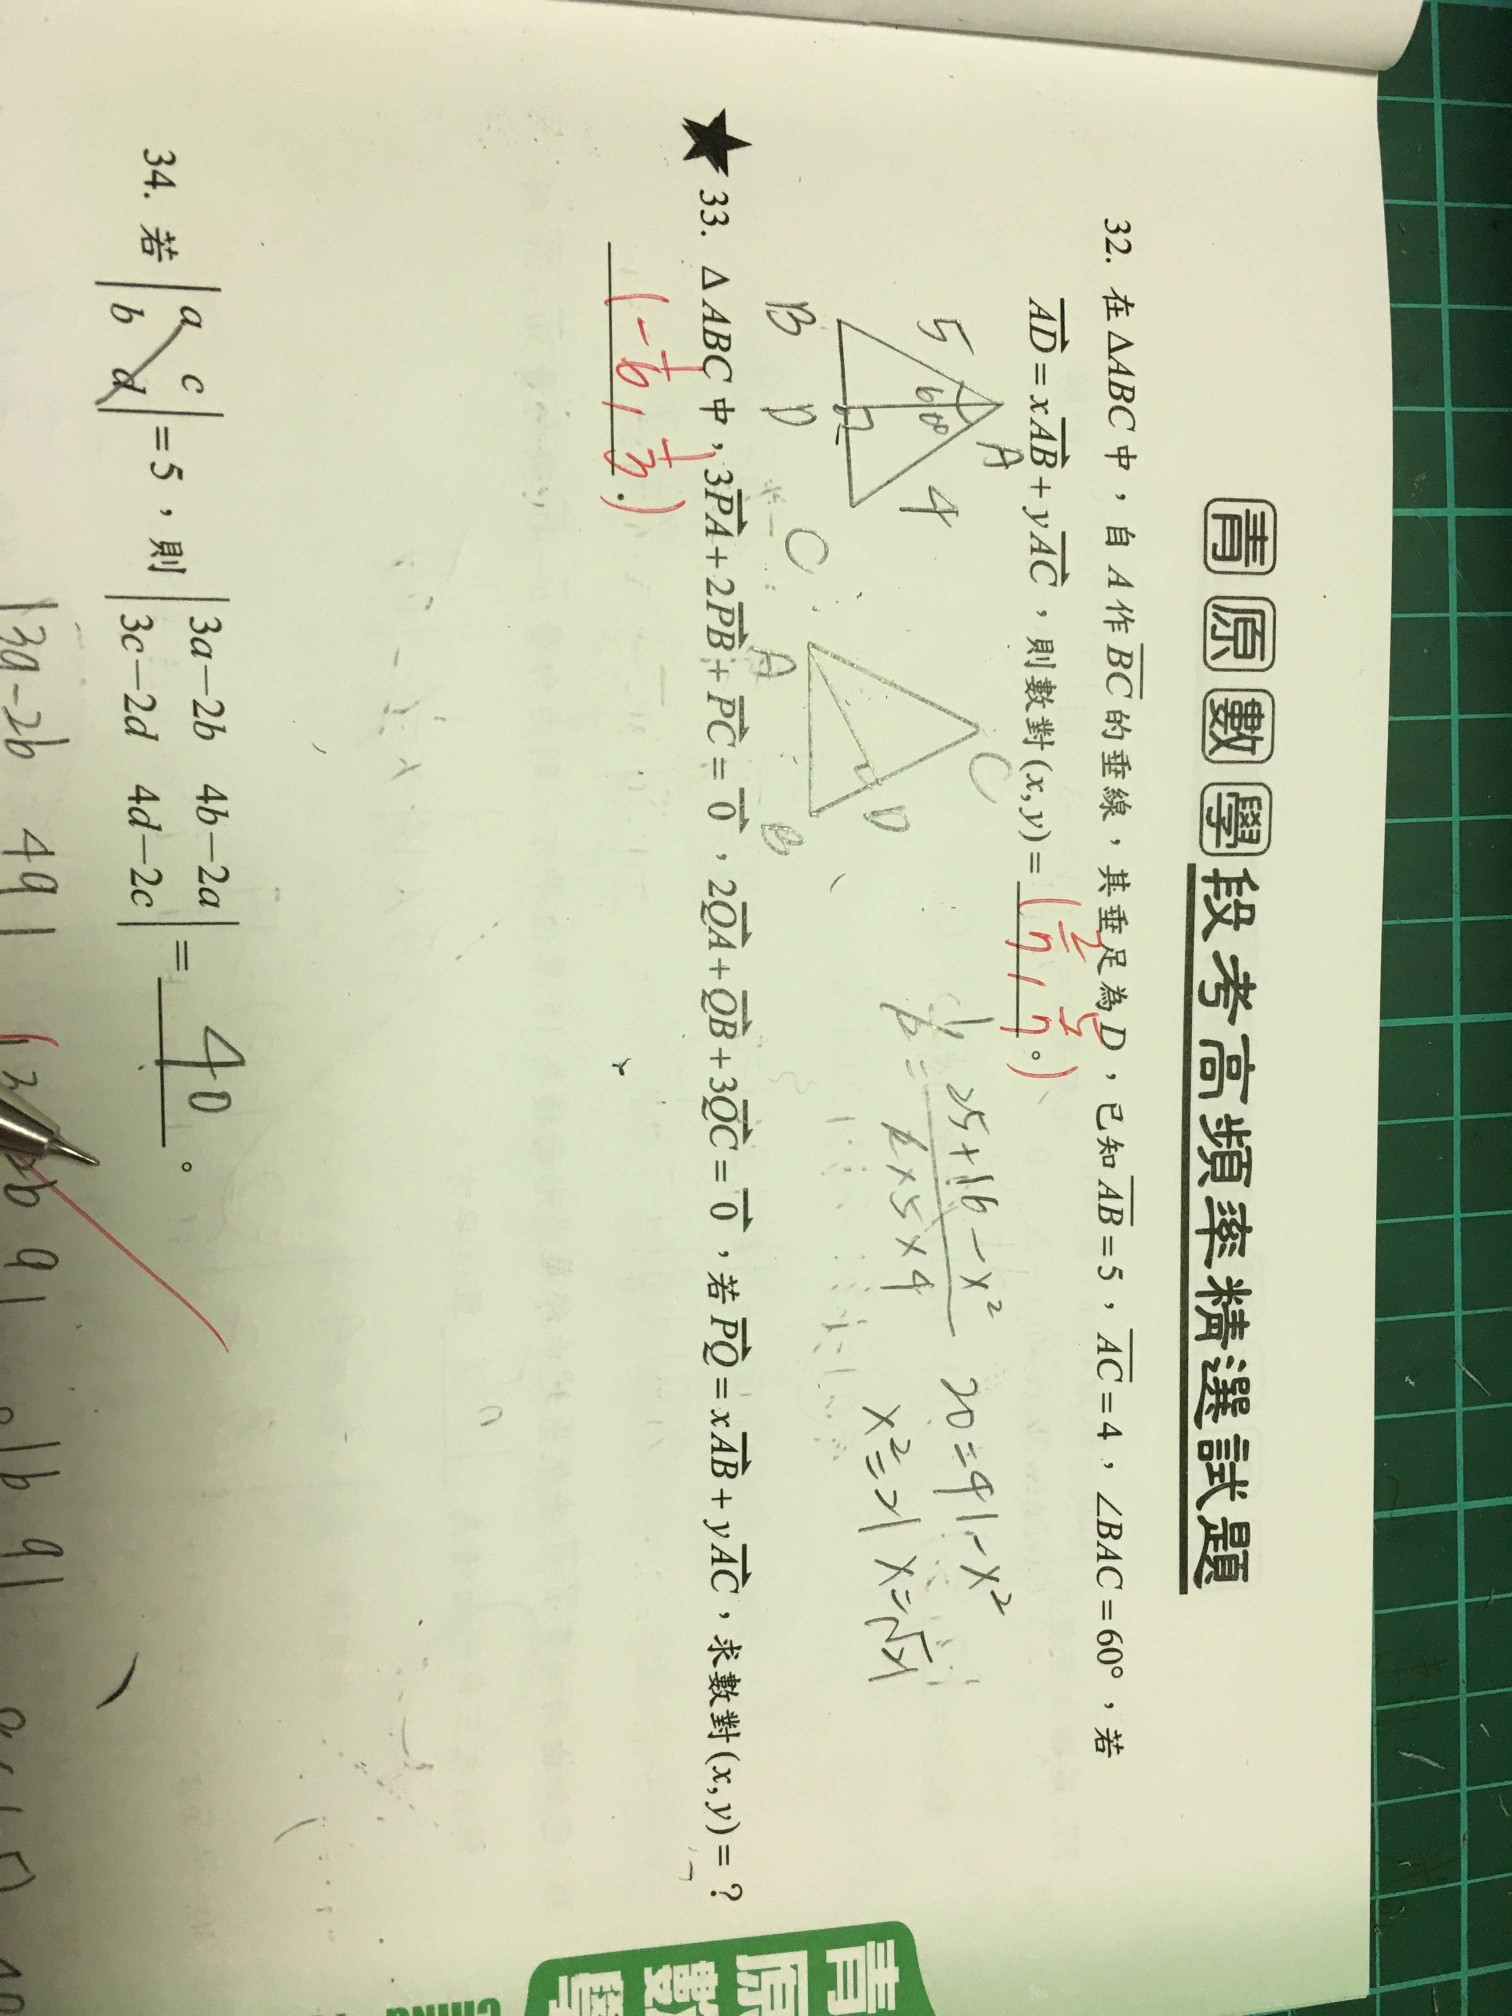 青原數學段考高頻率精選試題
32. 在△ABC中，自A作BC的垂線，其垂足為D，已知AB=5，AC=4，∠BAC=60°，若
AD=xAB+yAC，則數對(x,y)=(2/7, 5/7)。
A
5
60°
4
B
D
C
C
D
A
B
1/2=(25+16-x²)/(2×5×4)
20=41-x²
x²=21 x=√21
★33. △ABC中，3PA+2PB+PC=0，2QA+QB+3QC=0，若PQ=xAB+yAC，求數對(x,y)=?
(-1/6, 1/3)。
34. 若|a c|
|b d|=5，則|3a-2b 4b-2a|
|3c-2d 4d-2c|=40。
|3a-2b
青原
數學